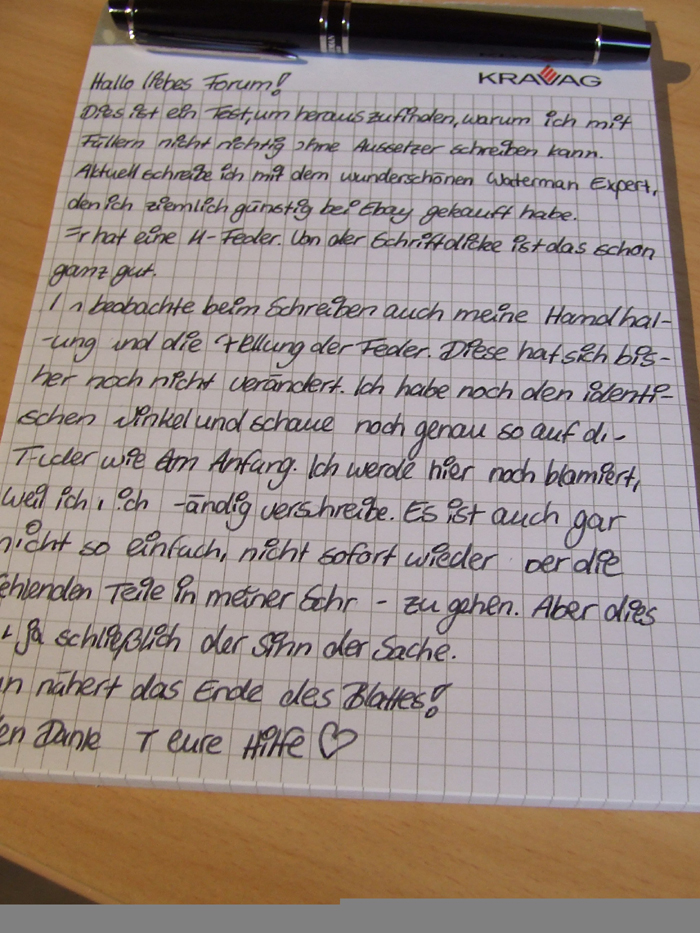 KRAVAG
Hallo liebes Forum!
Dies ist ein Test, um herauszufinden, warum ich mit
Füllern nicht richtig ohne Aussetzer schreiben kann.
Aktuell schreibe ich mit dem wunderschönen Waterman Expert,
den ich ziemlich günstig bei Ebay gekauft habe.
Er hat eine M-Feder. Von der Schriftdicke ist das schon
ganz gut.
beobachte beim Schreiben auch meine Handhal-
-ung und die tellung der Feder. Diese hat sich bis-
her noch nicht verändert. Ich habe noch den identi-
schen inkel und schaue noch genau so auf di
Feder wie am Anfang. Ich werde hier noch blamiert,
weil ich ich ändig verschreibe. Es ist auch gar
nicht so einfach, nicht sofort wieder ber die
ehlenden Teile in meiner Schr - zu gehen. Aber dies
ja schließlich der Sinn der Sache.
n nähert das Ende des Blattes!
en Dank eure Hilfe ♡